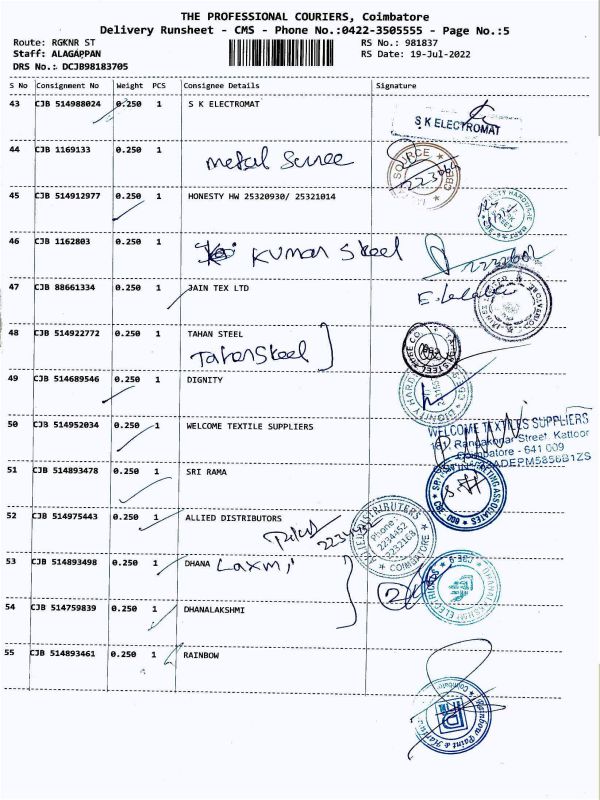 THE PROFESSIONAL COURIERS, Coimbatore
Delivery Runsheet - CMS - Phone No.:0422-3505555 - Page No.:5
Route: RGKNR ST
RS No.: 981837
Staff: ALAGAPPAN
RS Date: 19-Jul-2022
DRS No.: DCJB98183705
S No Consignment No Weight PCS Consignee Details Signature
43 CJB 514988024 0.250 1 S K ELECTROMAT
S K ELECTROMAT
44 CJB 1169133 0.250 1
metal
SOURCE
45 CJB 514912977 0.250 1 HONESTY HW 25320930/ 25321014
46 CJB 1162803 0.250 1
Kumar Steel
47 CJB 88661334 0.250 1 JAIN TEX LTD
48 CJB 514922772 0.250 1 TAHAN STEEL
Tahan Steel
49 CJB 514689546 0.250 1 DIGNITY
50 CJB 514952034 0.250 1 WELCOME TEXTILE SUPPLIERS
WELCOME TEXTILES SUPPLIERS
Street, Kattoor
Coimbatore - 641 009
51 CJB 514893478 0.250 1 SRI RAMA
52 CJB 514975443 0.250 1 ALLIED DISTRIBUTORS
ALLIED DISTRIBUTERS
Phone
2234452
2232168
COIMBATORE
53 CJB 514893498 0.250 1 DHANA Laxmi
54 CJB 514759839 0.250 1 DHANALAKSHMI
55 CJB 514893461 0.250 1 RAINBOW